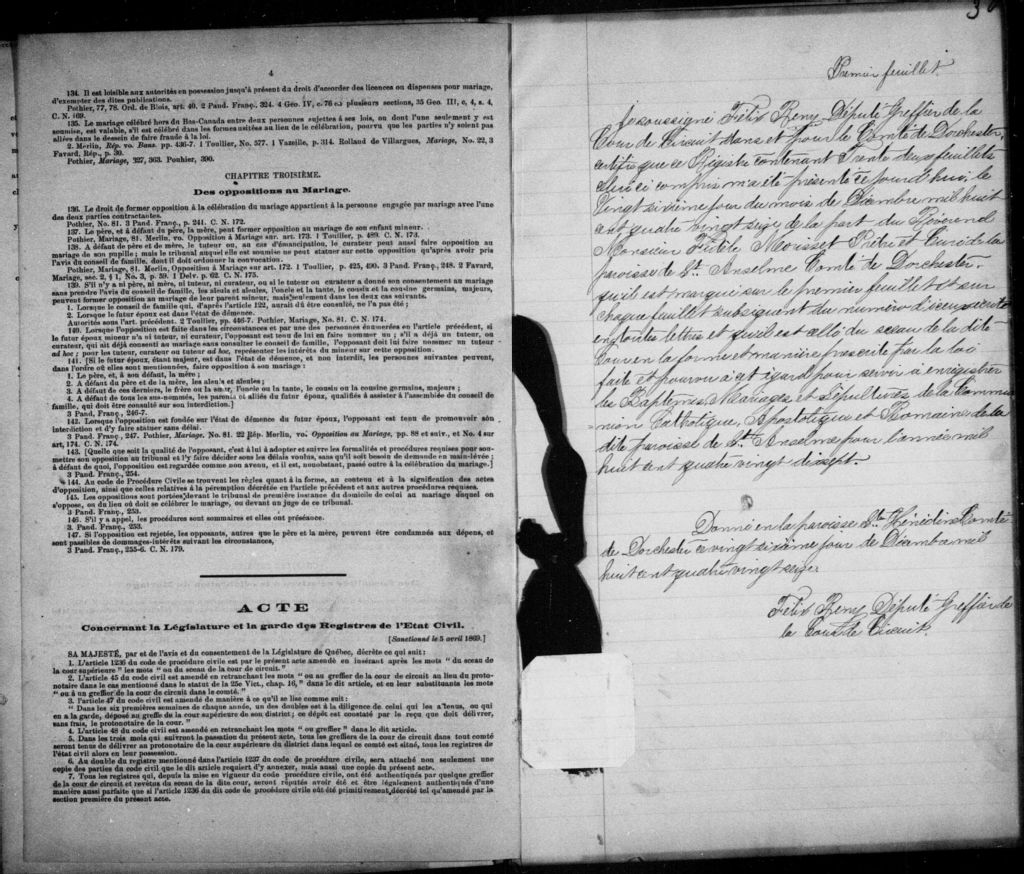 4
134. Il est loisible aux autorités en possession jusqu'à présent du droit d'accorder des licences ou dispenses pour mariage,
d'exempter des dites publications.
Pothier, 77, 78. Ord. de Blois, art. 40. 2 Pand. Franç. 324. 4 Geo. IV, c. 76 en plusieurs sections, 35 Geo. III, c, 4, s. 4,
C. N. 169.
135. Le mariage célébré hors du Bas-Canada entre deux personnes sujettes à ses lois, ou dont l'une seulement y est
soumise, est valable, s'il est célébré dans les formes usitées au lieu de la célébration, pourvu que les parties n'y soient pas
allées dans le dessein de faire fraude à la loi.
2. Merlin, Rép. vo. Bans. pp. 436-7. 1 Toullier, No. 577. 1 Vazeille, p. 314. Rolland de Villargues, Mariage, No. 22, 3
Favard, Rép., p. 30.
Pothier, Mariage, 327, 363. Pouhier, 390.
CHAPITRE TROISIÈME.
Des oppositions au Mariage.
136. Le droit de former opposition à la célébration du mariage appartient à la personne engagée par mariage avec l'une
des deux parties contractantes.
Pothier, No. 81. 3 Pand. Franç., p. 241. C. N. 172.
137. Le père, et à défaut du père, la mère, peut former opposition au mariage de son enfant mineur.
Pothier, Mariage, 81. Merlin, vo. Opposition à Mariage sur. art. 173. 1 Toullier, p. 489. C. N. 173.
138. A défaut de père et de mère, le tuteur ou, au cas d'émancipation, le curateur peut aussi faire opposition au
mariage de son pupille; mais le tribunal auquel elle est soumise ne peut statuer sur cette opposition qu'après avoir pris
l'avis du conseil de famille, dont il doit ordonner la convocation.
Pothier, Mariage, 81. Merlin, Opposition à Mariage sur art. 172. 1 Toullier, p. 425, 490. 3 Pand. Franç., 248. 2 Favard,
Mariage, sec. 2, § 1, No. 3, p. 59. 1 Delv. p. 62. C. N. 175.
139. S'il n'y a ni père, ni mère, ni tuteur, ni curateur, ou si le tuteur ou curateur a donné son consentement au mariage
sans prendre l'avis du conseil de famille, les aïeuls et aïeules, l'oncle et la tante, le cousin et la cousine germains, majeurs,
peuvent former opposition au mariage de leur parent mineur, mais seulement dans les deux cas suivants.
1. Lorsque le conseil de famille qui, d'après l'article 122, aurait dû être consulté, ne l'a pas été;
2. Lorsque le futur époux est dans l'état de démence.
Autorités sous l'art. précédent. 2 Toullier, pp. 446-7. Pothier, Mariage, No. 81. C. N. 174.
140. Lorsque l'opposition est faite dans les circonstances et par une des personnes énumérées en l'article précédent, si
le futur époux mineur n'a ni tuteur, ni curateur, l'opposant est tenu de lui en faire nommer un; s'il a déjà un tuteur, ou
curateur, qui ait déjà consenti au mariage sans consulter le conseil de famille, l'opposant doit lui faire nommer un tuteur
ad hoc; pour les tuteur, curateur ou tuteur ad hoc, représenter les intérêts du mineur sur cette opposition.
141. [Si le futur époux, étant majeur, est dans l'état de démence, et non interdit, les personnes suivantes peuvent,
dans l'ordre où elles sont mentionnées, faire opposition à son mariage:
1. Le père, et, à son défaut, la mère;
2. A défaut du père et de la mère, les aïeuls et aïeules;
3. A défaut de ces derniers, le frère ou la sœur, l'oncle ou la tante, le cousin ou la cousine germains, majeurs;
4. A défaut de tous les sus-nommés, les parents et alliés du futur époux, qualifiés à assister à l'assemblée du conseil de
famille, qui doit être consulté sur son interdiction.]
3 Pand. Franç., 246-7.
142. Lorsque l'opposition est fondée sur l'état de démence du futur époux, l'opposant est tenu de promouvoir son
interdiction et d'y faire statuer sans délai.
3 Pand. Franç., 247. Pothier, Mariage. No. 81. 22 Rép. Merlin, vo. Opposition au Mariage, pp. 88 et suiv., et No. 4 sur
art, 174. C. N. 174.
143. [Quelle que soit la qualité de l'opposant, c'est à lui à adopter et suivre les formalités et procédures requises pour sou-
mettre son opposition au tribunal et l'y faire décider sous les délais voulus, sans qu'il soit besoin de demande en main-levée;
à défaut de quoi, l'opposition est regardée comme non avenu, et il est, nonobstant, passé outre à la célébration du mariage.]
3 Pand. Franç., 254.
144. Au code de Procédure Civile se trouvent les règles quant à la forme, au contenu et à la signification des actes
d'opposition, ainsi que celles relatives à la péremption décrétée en l'article précédent et aux autres procédures requises.
145. Les oppositions sont portées devant le tribunal de première instance du domicile de celui au mariage duquel on
s'oppose, ou du lieu où doit se célébrer le mariage, ou devant un juge de ce tribunal.
3 Pand. Franç., 253.
146. S'il y a appel, les procédures sont sommaires et elles ont préséance.
3. Pand. Franç., 253.
147. Si l'opposition est rejetée, les opposants, autres que le père et la mère, peuvent être condamnés aux dépens, et
sont passibles de dommages-intérêts suivant les circonstances,
3 Pand. Franç., 255-6. C. N. 179.
ACTE
Concernant la Législature et la garde des Registres de l'Etat Civil.
[Sanctionné le 5 avril 1869.]
SA MAJESTÉ, par et de l'avis et du consentement de la Législature de Québec, décrète ce qui suit:
1. L'article 1236 du code de procédure civile est par le présent acte amendé en insérant après les mots " du sceau de
la cour supérieure " les mots " ou du sceau de la cour de circuit."
2. L'article 45 du code civil est amendé en retranchant les mots " ou au greffier de la cour de circuit au lieu du proto-
notaire dans le cas mentionné dans le statut de la 25e Vict., chap. 16, " dans le dit article, et en leur substituants les mots
" ou à un greffier de la cour de circuit dans le comté."
3. l'article 47 du code civil est amendé de manière à ce qu'il se lise comme suit:
" Dans les six premières semaines de chaque année, un des doubles est à la diligence de celui qui les a tenus, ou qui
en a la garde, déposé au greffe de la cour supérieure de son district; ce dépôt est constaté par le reçu que doit délivrer,
sans frais, le protonotaire de la cour."
4. L'article 48 du code civil est amendé en retranchant les mots " ou greffier " dans le dit article.
5. Dans les trois mois qui suivront la passation du présent acte, tous les greffiers de la cour de circuit dans tout comté
seront tenus de délivrer au protonotaire de la cour supérieure du district dans lequel ce comté est situé, tous les registres de
l'état civil alors en leur possession.
6. Au double du registre mentionné dans l'article 1237 du code de procédure civile, sera attaché non seulement une
copie des parties du code civil que le dit article requiert d'y annexer, mais aussi une copie du présent acte.
7. Tous les registres qui, depuis la mise en vigueur du code procédure civile, ont été authentiqués par quelque greffier
de la cour de circuit et revêtus du sceau de la dite cour, seront réputés avoir été et être légalement authentiqués d'une
manière aussi parfaite que si l'article 1236 du dit code de procédure civile eût été primitivement décrété tel qu'amendé par la
section première du présent acte.
Premier feuillet.
Je soussigné Félix Remy Député Greffier de la
Cour de Circuit dans et pour le Comté de Dorchester,
certifie que ce Régistre contenant Trente deux feuillets
celui ci compris m'a été présenté ce jourd'hui, le
Vingt sixième jour du mois de Décembre mil huit
cent quatre vingt seize de la part du Révérend
Monsieur Fidèle Morisset Prêtre et Curé de la
paroisse de St. Anselme Comté de Dorchester.
qu'il est marqué sur le premier feuillet et sur
chaque feuillet subséquent du numéro d'iceux écrits
en toutes lettres et qu'il est scellé du sceau de la dite
Cour en la forme et manière prescrite par la loi
faite et pourvu à cet égard pour servir à enregistrer
les Baptêmes, Mariages et Sépultures de la Commu
nion Catholique, Apostolique et Romaine de la
dite paroisse de St. Anselme pour l'année mil
huit cent quatre vingt dix sept.
Donné en la paroisse Ste Hénédine Comté
de Dorchester ce vingt sixième jour de Décembre mil
huit cent quatre vingt seize.
Félix Remy Député Greffier de
la Cour de Circuit.